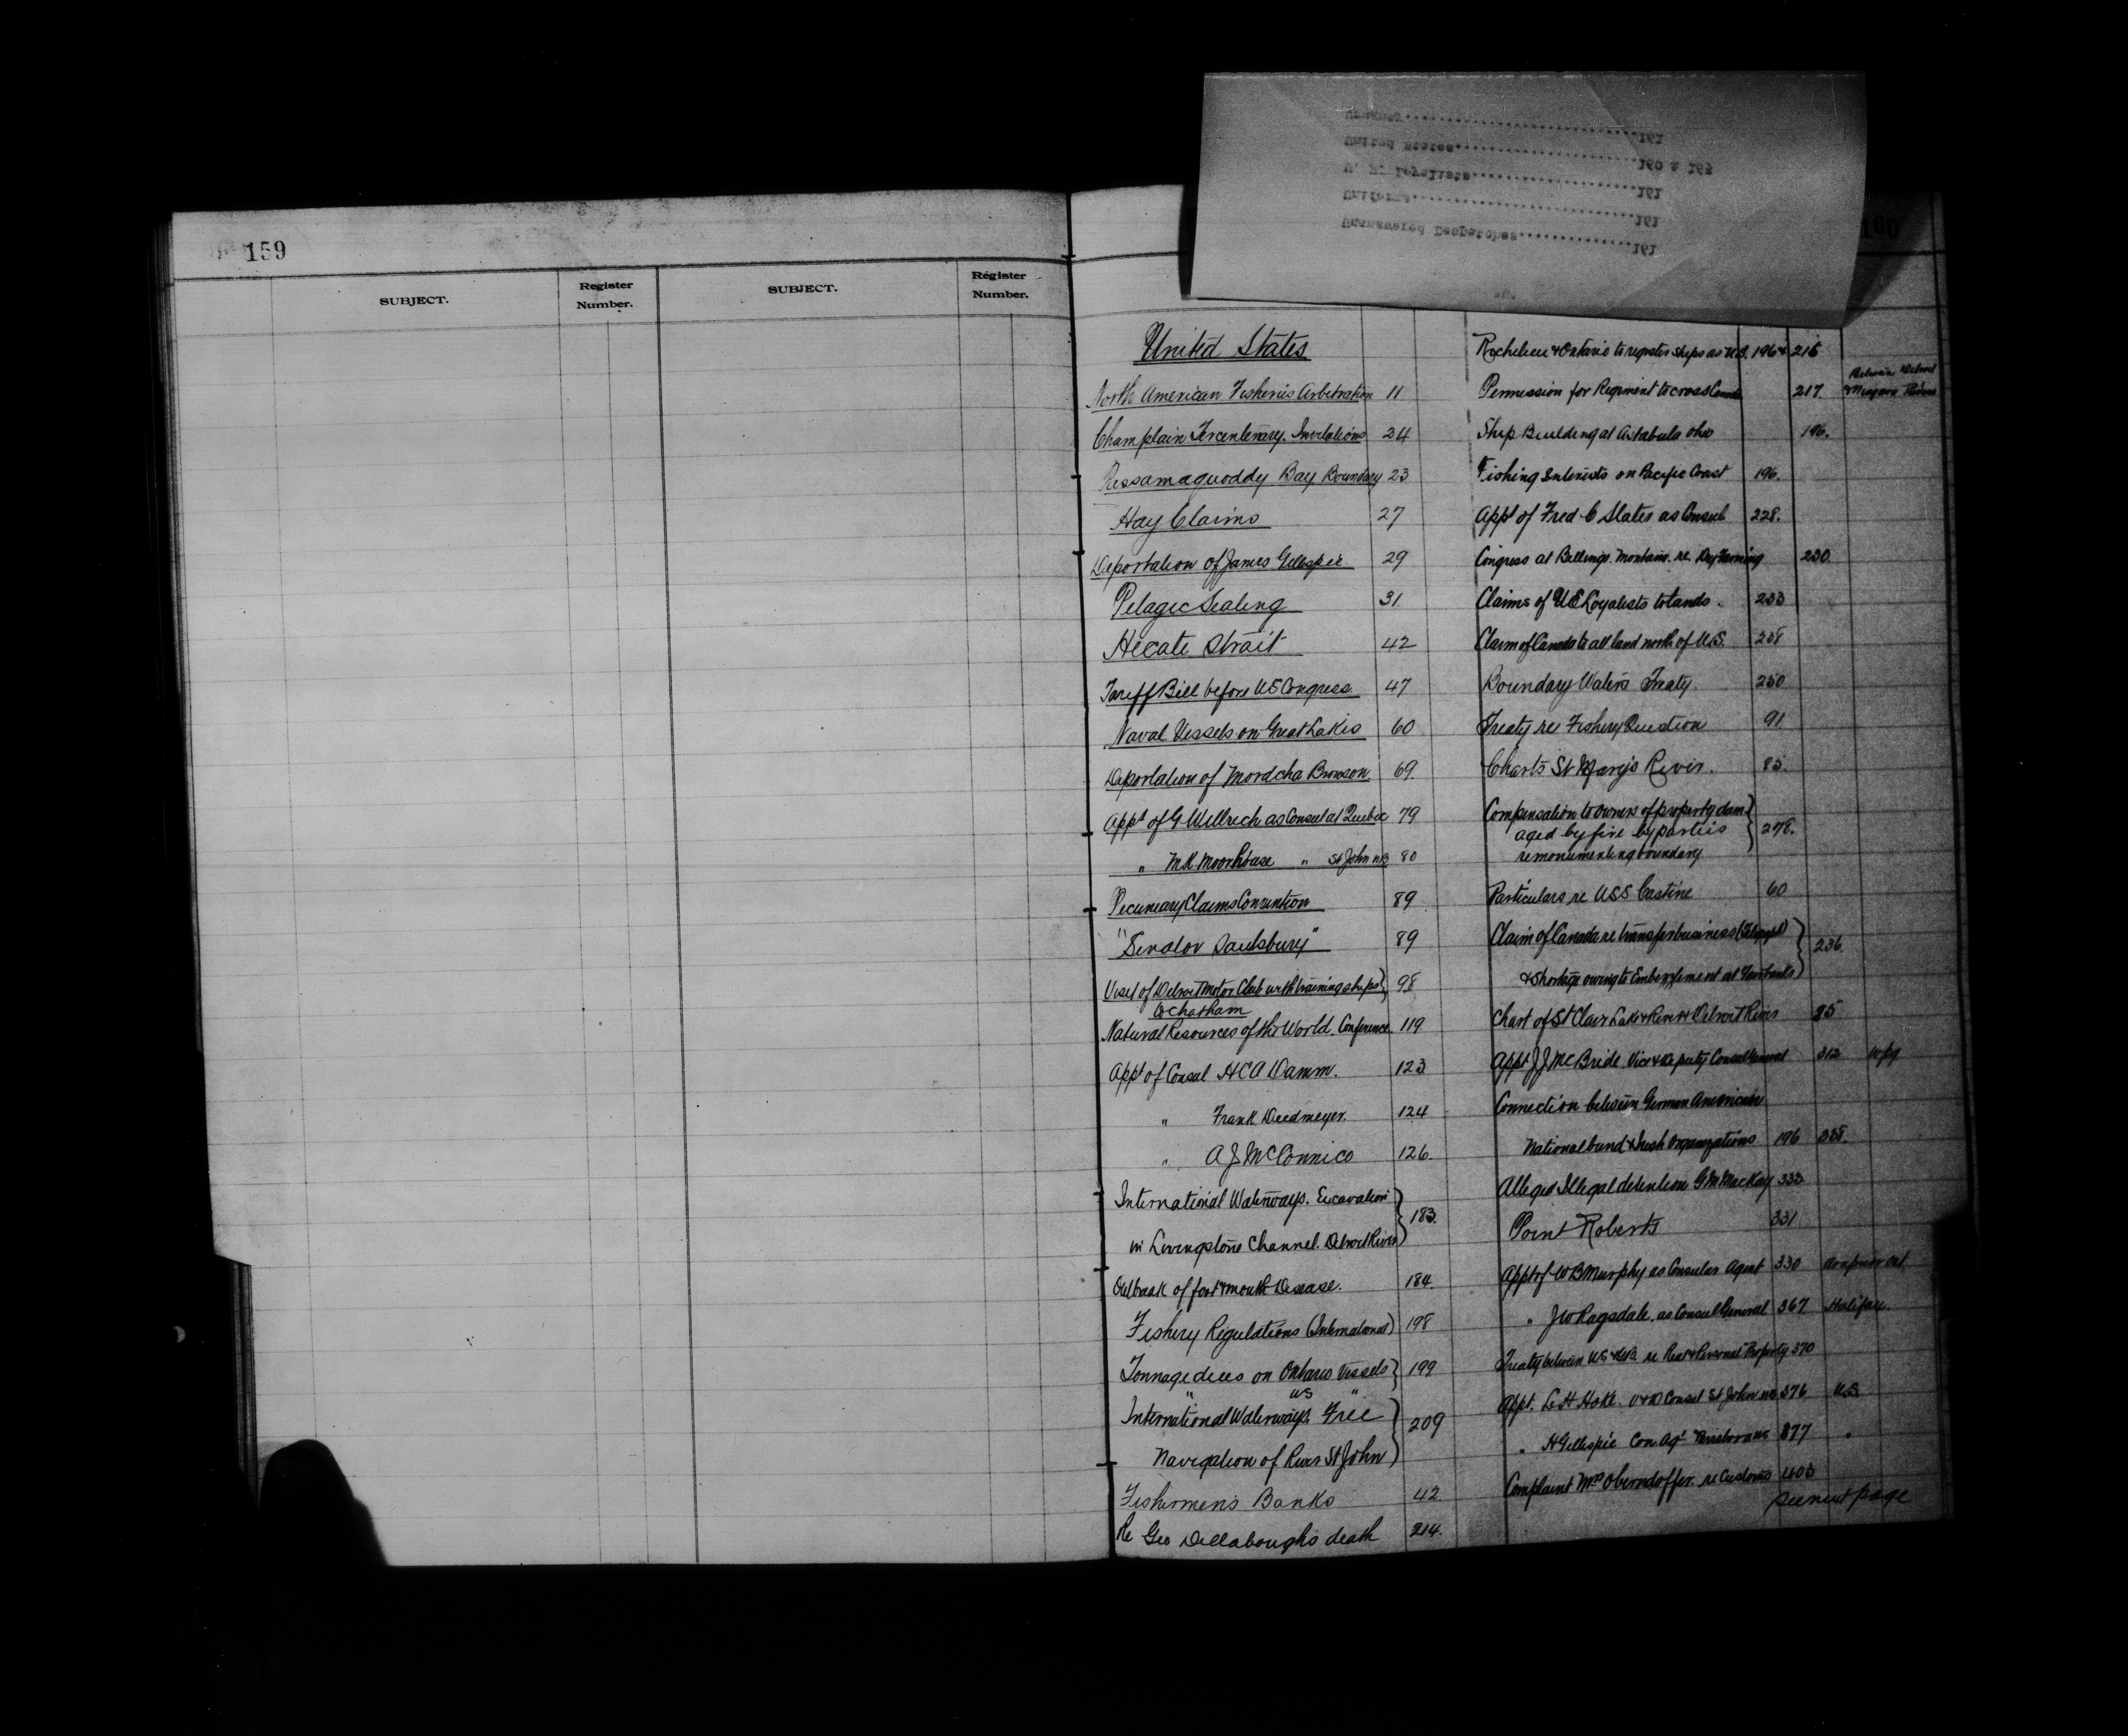 159
SUBJECT.
Register
Number.
SUBJECT.
Register
Number.
160
Uruguay 161
United States 160 & 162
U. E. Loyalists 161
Uniforms 161
Unanswered Despatches 161
United States
North American Fisheries Arbitration 11
Champlain Tercentenary. Invitations 24
Passamaquoddy Bay Boundary 23
Hay Claims 27
Deportation of James Gillespie 29
Pelagic Sealing 31
Hecate Strait 42
Tariff Bill before US Congress. 47
Naval Vessels on Great Lakes 60
Deportation of Mordcha Bronson 69.
Appt of G Willrich as Consul at Quebec 79
" M K Moorhead " St John NB 80
Pecuniary Claims Convention 89
"Senator Saulsbury" 89
Visit of Detroit Motor Club with training ships 98
to Chatham
Natural Resources of the World. Conference. 119
Appt of Consul H C A Damm. 123
" Frank Deedmeyer. 124
" A J McConnico 126.
International Waterways. Excavation
in Livingstone Channel. Detroit River 183.
Outbreak of foot & mouth Disease. 184.
Fishery Regulations (International) 198
Tonnage dues on Ontario Vessels 199
" US "
International Waterways. Free 209
Navigation of River St John
Fishermens Banks 42
Re Geo Dellabough's death 214.
Richelieu & Ontario to register ships as U.S. 196 & 215
Permission for Regiment to cross Canada 217. Between Detroit
& Niagara Rivers
Ship Building at Astabula Ohio 196.
Fishing Interests on Pacific Coast 196.
Appt of Fred C Slater as Consul 228.
Congress at Billings. Montana. re Dry Farming 230
Claims of U E Loyalists to lands. 233
Claim of Canada to all land north of U.S. 238
Boundary Waters Treaty. 250
Treaty re Fishery Question 91
Charts St Marys River. 85.
Compensation to owners of property dam
aged by fire by parties 278.
remonumenting boundary
Particulars re USS Castine 60
Claim of Canada re transfer business (Telegraph)
& Shortage owing to Embezzlement at Fairbanks 236.
Chart of St Clair Lake & River & Detroit River 85
Appt J J McBride Vice & Deputy Consul General 312 Wpg
Connection between German American
National bund & Irish Organizations 196 288.
Alleged Illegal detention G M MacKay 333
Point Roberts 331
Appt of W B Murphy as Consular Agent 330 Arnprior Ont.
" J W Ragsdale. as Consul General 367 Halifax.
Treaty between US & GB. re Real & Personal Property 370
Appt. L H Hoke. V & D Consul St John NB 376 U.S.
" H Gillespie Con Agt 377 "
Complaint Mrs Oberndoffer. re Customs 403
see next page